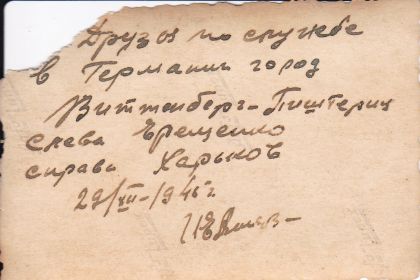 Друзья по службе
в Германии город
Виттенберг-Пиштериц
слева Ерещенко
справа Харьков
29/XII-1946 г